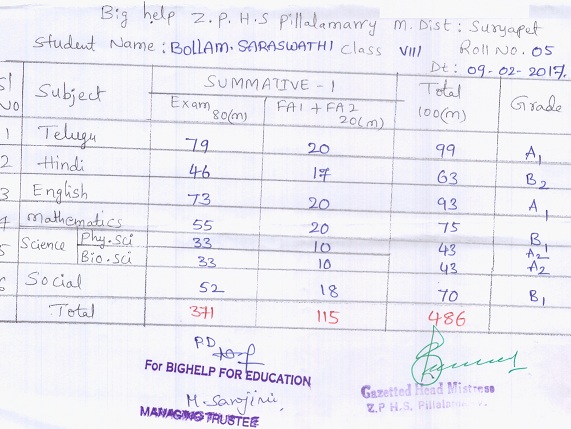 Big help Z.P.H.S Pillalamarry M.Dist: Suryapet
Student Name: BOLLAM. SARASWATHI Class VIII Roll No. 05
Dt: 09-02-2017.
Sl No Subject SUMMATIVE-1 Total 100(m) Grade
Exam 80(m) FA1+FA2 20(m)
1 Telugu 79 20 99 A1
2 Hindi 46 17 63 B2
3 English 73 20 93 A1
4 Mathematics 55 20 75 B1
5 Science Phy.sci 33 10 43 A2
Bio.sci 33 10 43 A2
6 Social 52 18 70 B1
Total 371 115 486
P.D
For BIGHELP FOR EDUCATION
M. Sarojini
MANAGING TRUSTEE
Gazetted Head Mistress
Z.P H.S.